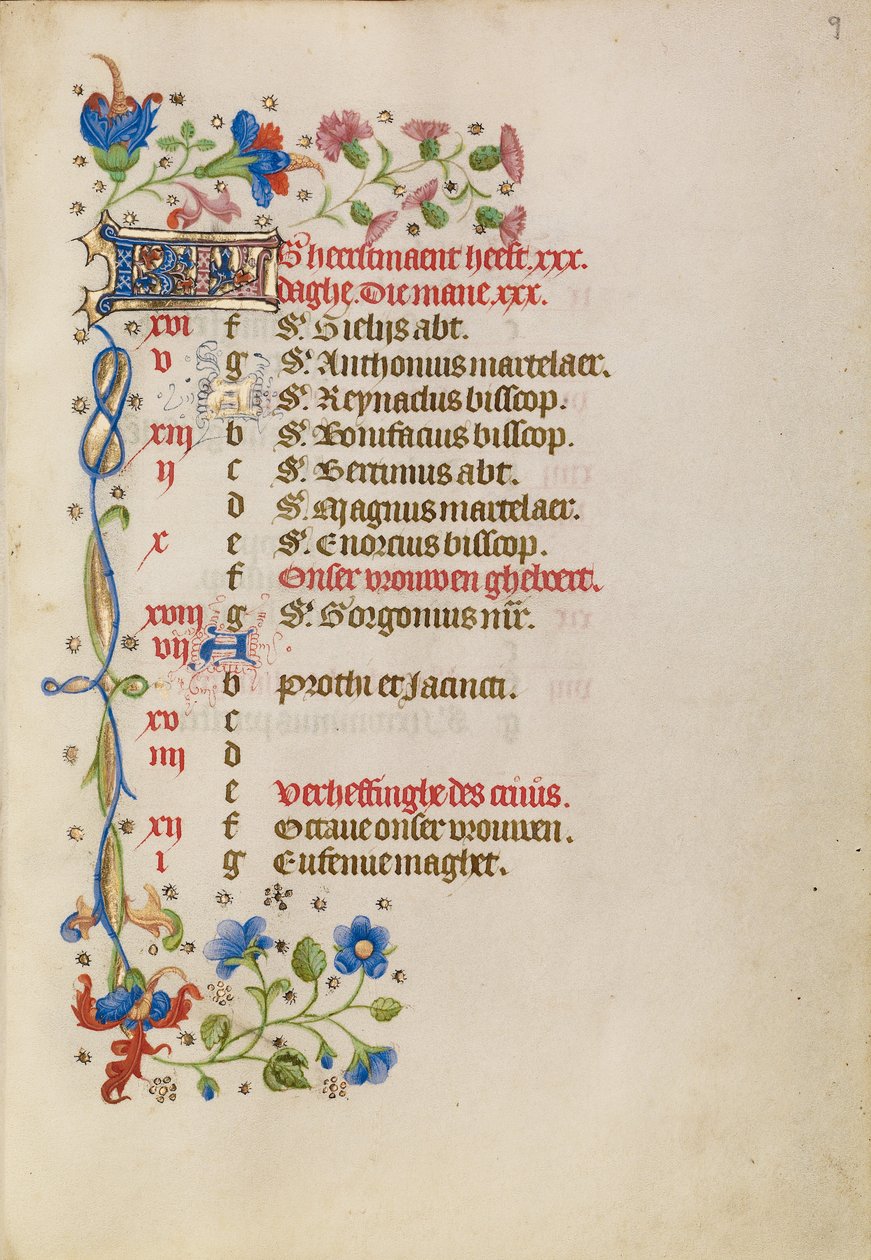 9
Gheerstmaent heeft. xxx.
daghe. Die mane. xxx.
xvi f S'. Gielijs abt.
v g S'. Anthonius martelaer.
A S'. Reynadus bisscop.
xiij b S'. Bonifacius bisscop.
ij c S'. Bertinius abt.
d S'. Magnus martelaer.
x e S'. Enorcius bisscop.
f Onser vrouwen ghebort.
xviij g S'. Gorgonius mr.
vij A
b Prothi et Jacincti.
xv c
iiij d
e Verheffinghe des cruus.
xij f Octaue onser vrouwen.
i g Eufemie maghet.